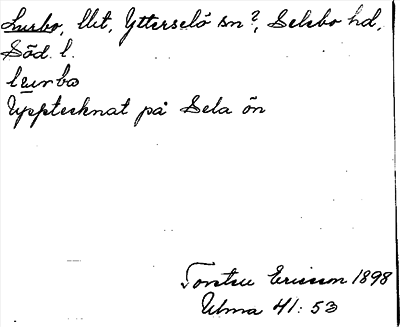 Lurbo, llit, Ytterselö sn?, Selebo hd,
Söd. l.
Upptecknat på Sela ön
Torsten Ericsson 1898
Ulma 41:53